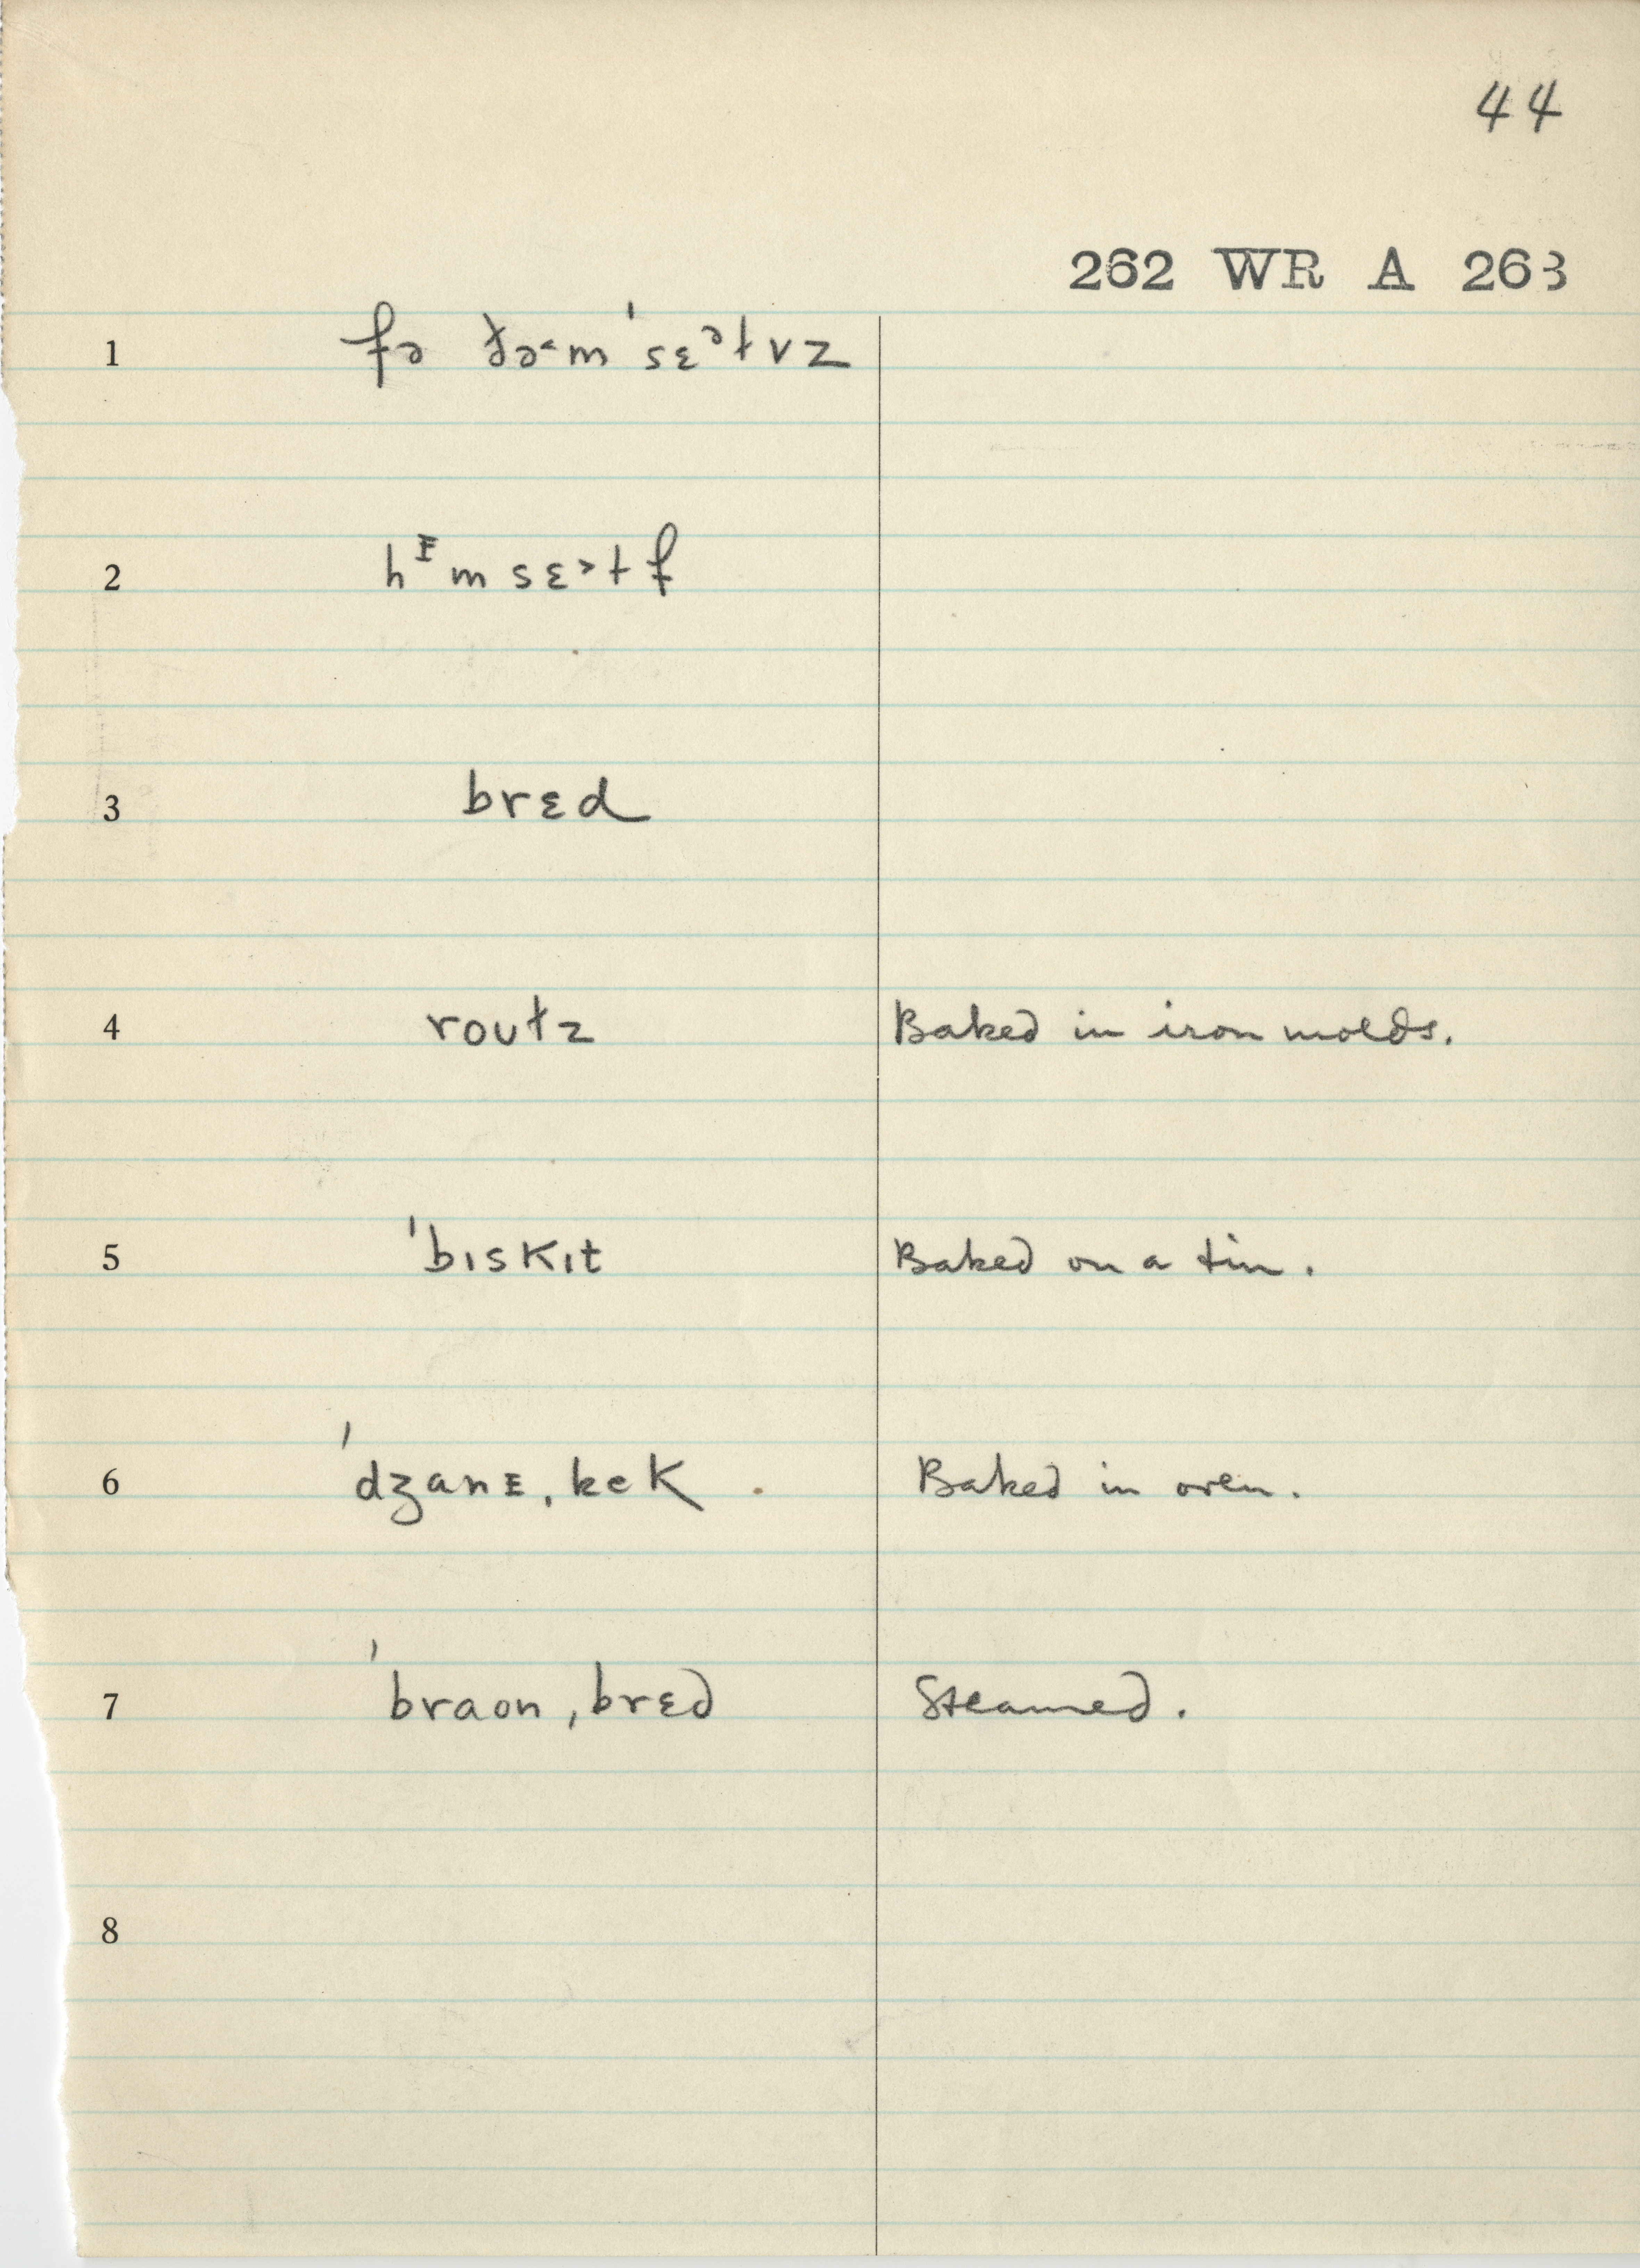 44
262 WR A 263
1 fə ðə˞m ˈsɛᵊɫvz
2 hᴵm sɛ˃ɫf
3 brɛd
4 roʊɫz Baked in iron molds.
5 ˈbɪskɪt Baked on a tin.
6 ˈdʒanɪˌkek Baked in oven.
7 ˈbraonˌbrɛd Steamed.
8